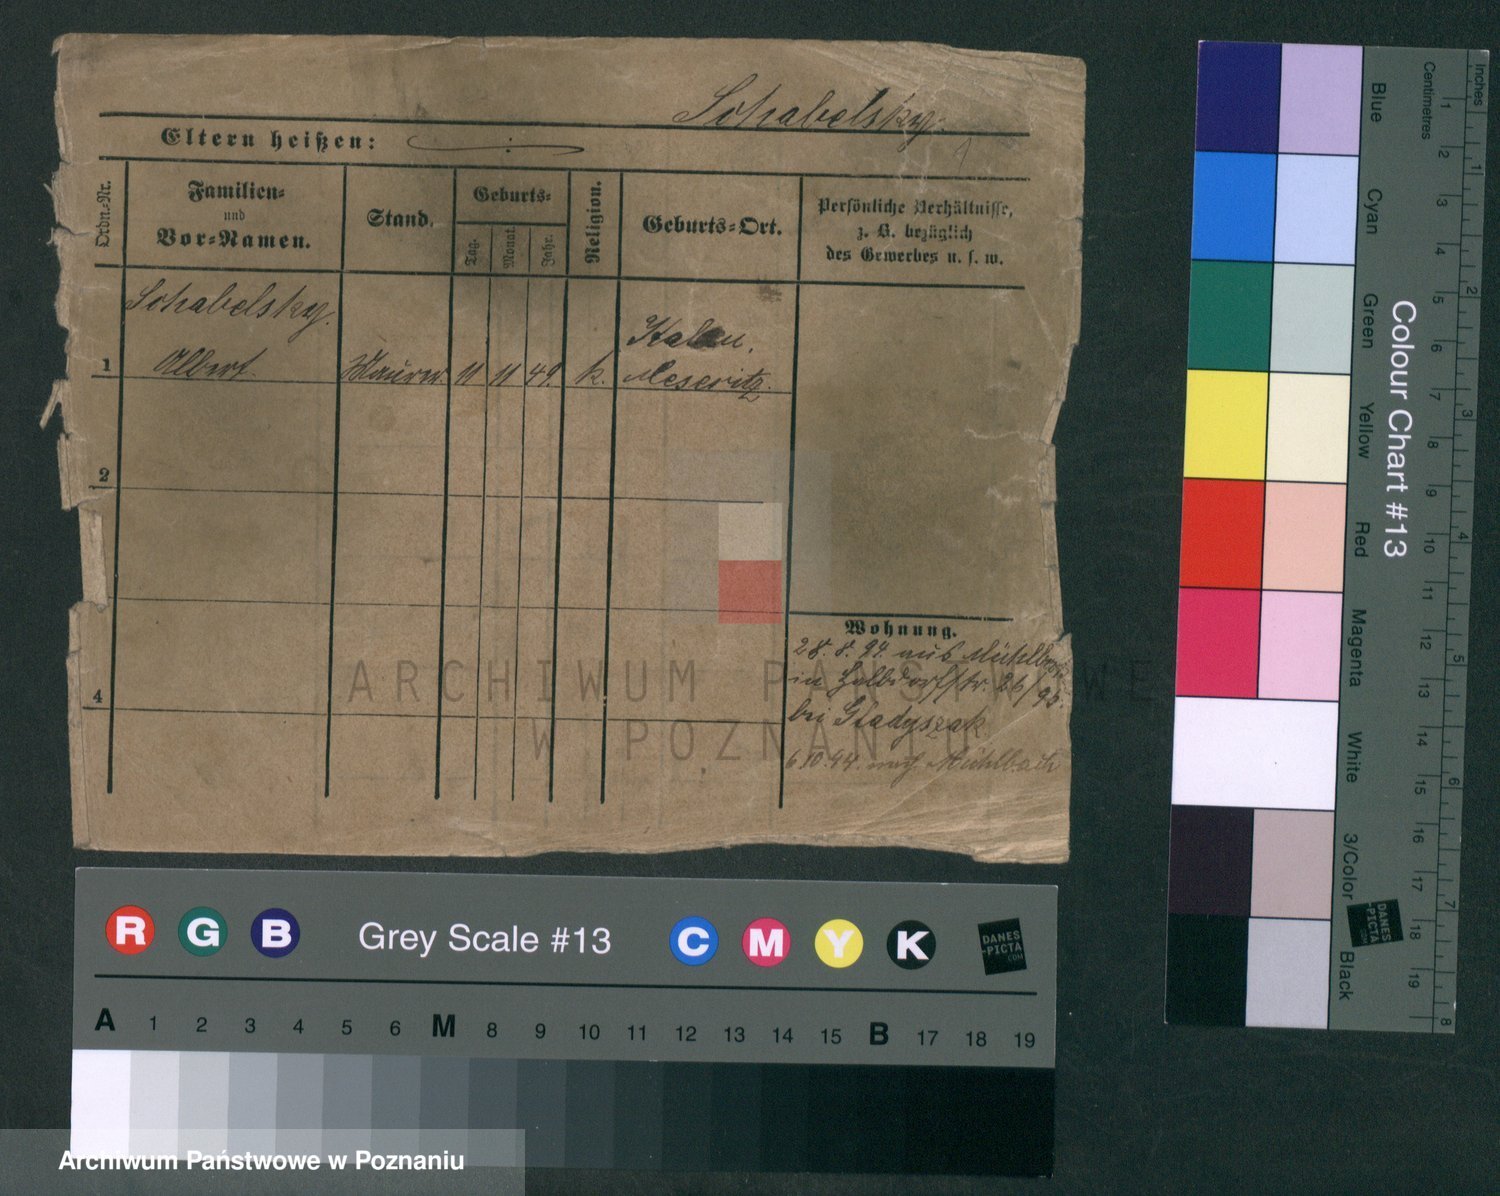 Schabelsky.
Eltern heißen:
Ordn.-Nr.
Familien-
und
Vor-Namen.
Stand.
Geburts-
Tag.
Monat.
Jahr.
Religion.
Geburts-Ort.
Persönliche Verhältnisse,
z. B. bezüglich
des Gewerbes u. s. w.
Schabelsky.
1 Albert Maurer 11 11 49. k. Meseritz.
2
4
Wohnung.
28. 8. 94. aus Mühlbach
in Halbdorfstr. 26/
bei Gladyszak
6.10.94. nach Mühlbach
ARCHIWUM PAŃSTWOWE
W POZNANIU
R G B Grey Scale #13 C M Y K
DANES
-PICTA
.COM
A 1 2 3 4 5 6 M 8 9 10 11 12 13 14 15 B 17 18 19
Archiwum Państwowe w Poznaniu
Colour Chart #13
Blue Cyan Green Yellow Red Magenta White 3/Color Black
DANES
-PICTA
.COM
Centimetres 1 2 3 4 5 6 7 8 9 10 11 12 13 14 15 16 17 18 19
Inches 1 2 3 4 5 6 7 8